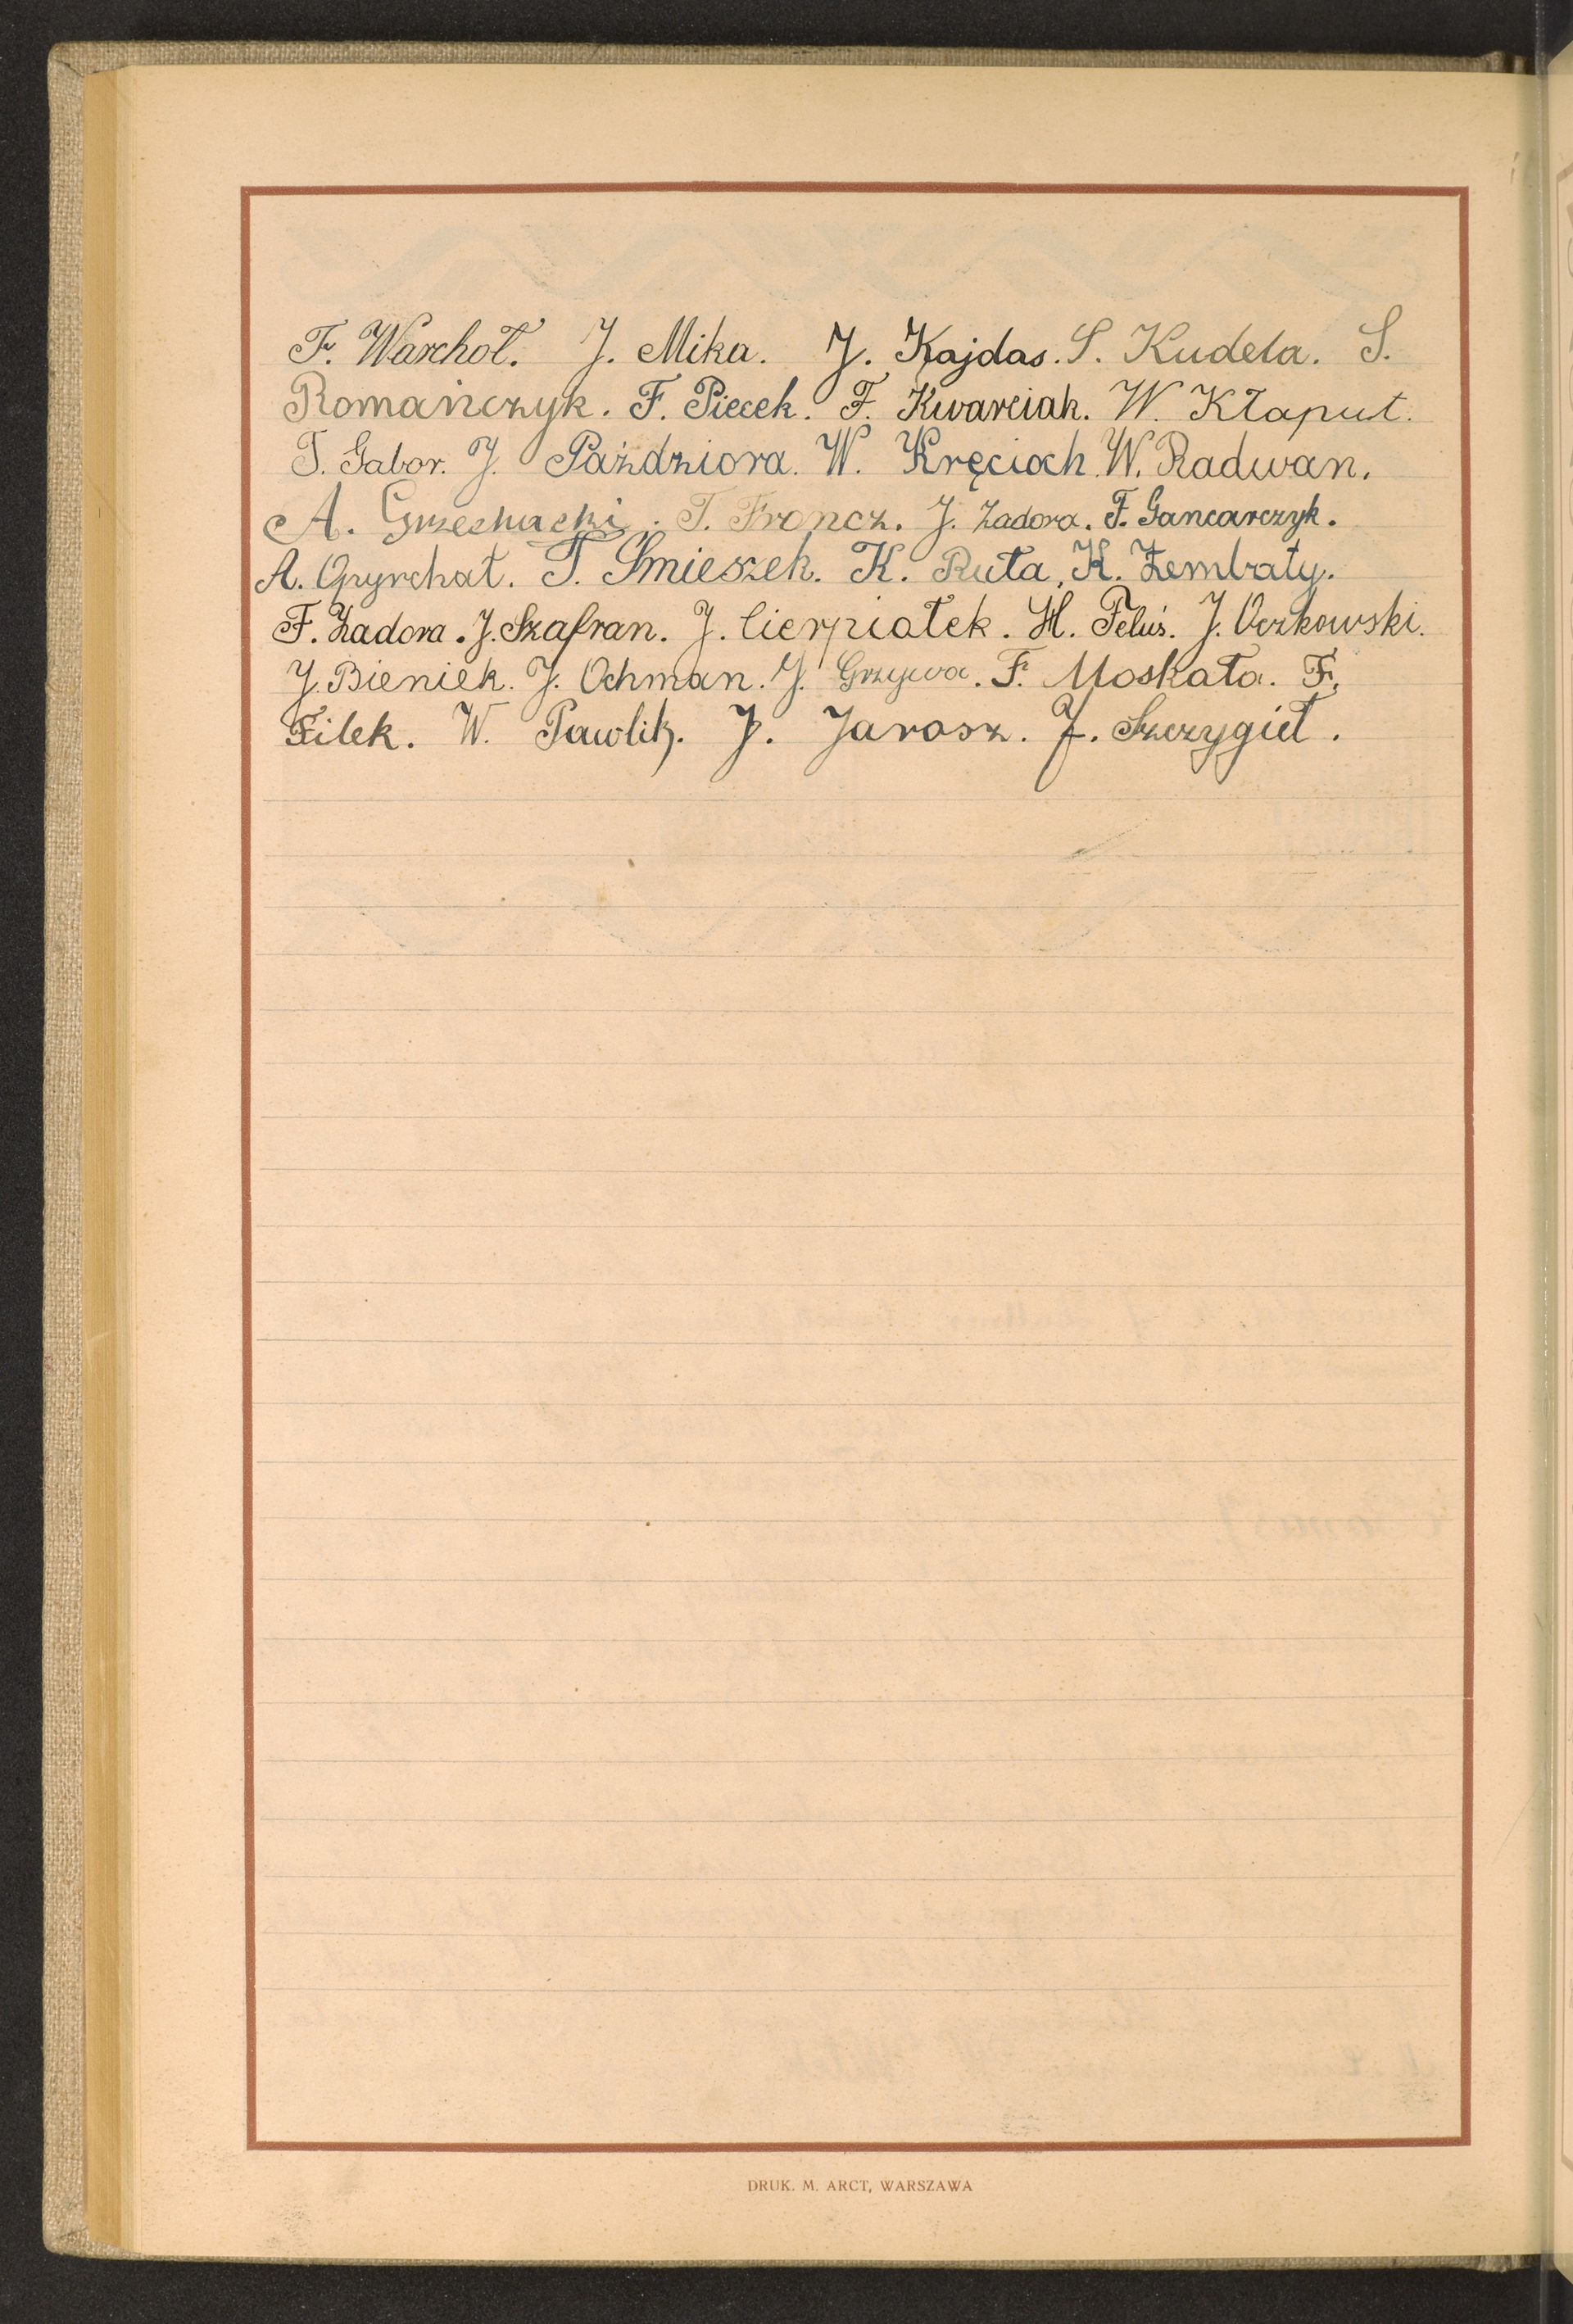 F. Warchoł. J. Mika. J. Kajdas. S. Kudela. S.
Romańczyk. F. Piecek. F. Kwarciak. W. Kłaput.
T. Gabor. J. Paździora. W. Kręcioch. W. Radwan.
A. T. Froncz. J. Zadora. F. Gancarczyk.
A. Opyrchał. T. Smieszek. K. Ruta, K. Zembaty.
F. Zadora. J. Szafran. J. Cierpiałek. H. Feluś. J.
J. Bieniek. J. Ochman. J. Grzywa. F. Moskała. F.
Filek. W. Pawlik. J. Jarosz. J. Szczygieł.
DRUK. M. ARCT, WARSZAWA